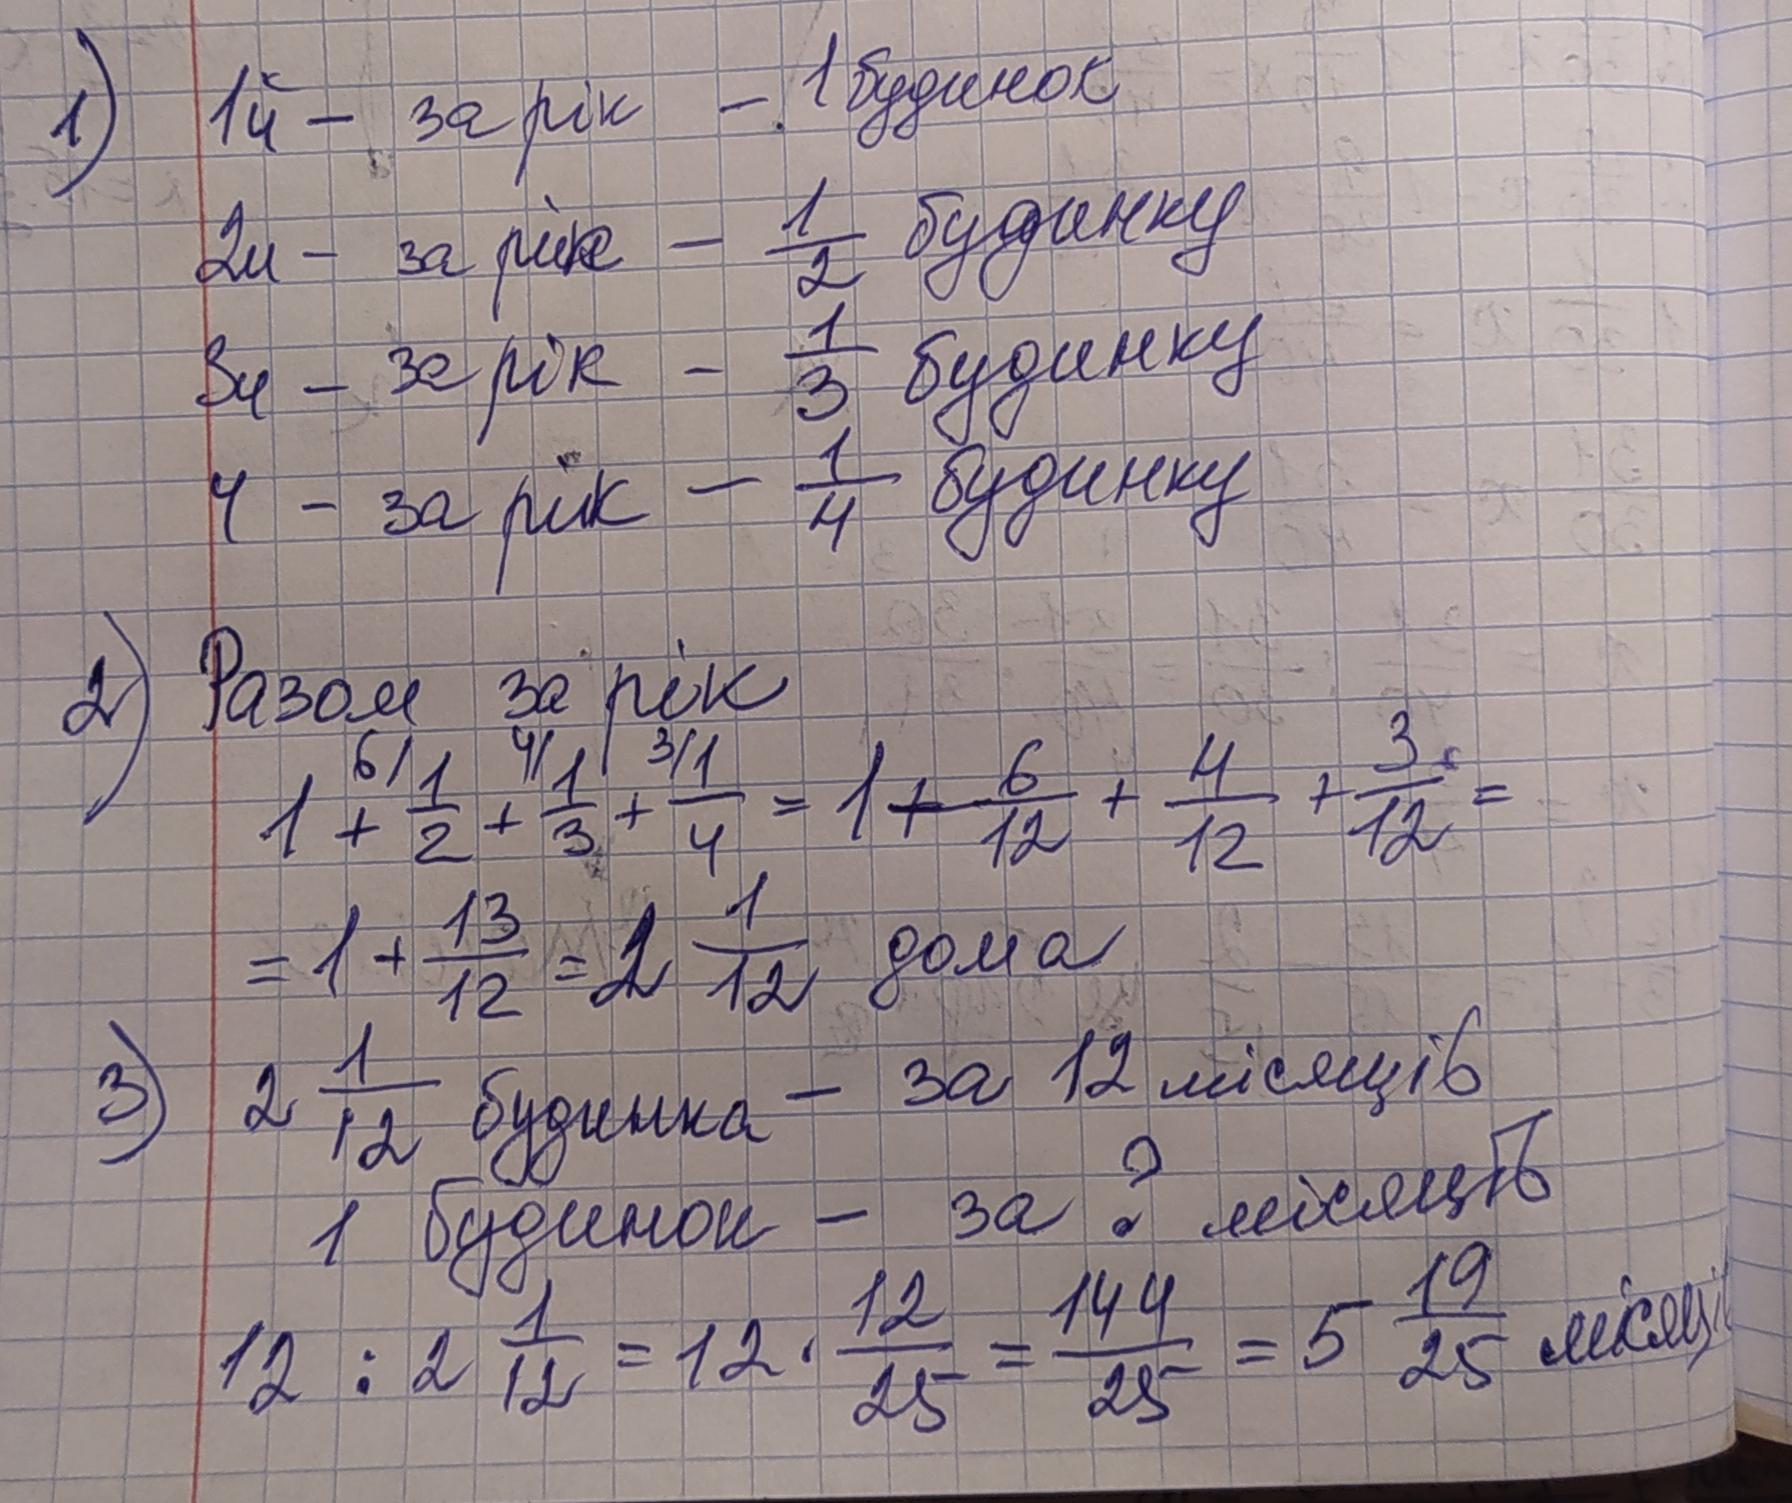 1) 1й - за рік - 1 будинок
2й - за рік - 1/2 будинку
3й - за рік - 1/3 будинку
4 - за рік - 1/4 будинку
2) Разом за рік
1 + 6/ 1/2 + 4/ 1/3 + 3/ 1/4 = 1 + 6/12 + 4/12 + 3/12 =
= 1 + 13/12 = 2 1/12 дома
3) 2 1/12 будинка - за 12 місяців
1 будинок - за ? місяців
12 : 2 1/12 = 12 · 12/25 = 144/25 = 5 19/25 місяців